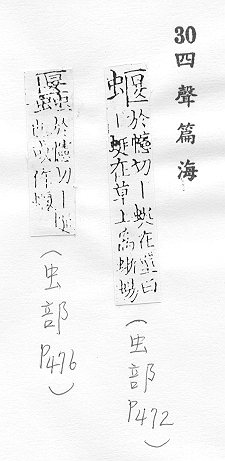 30 四聲篇海
蝘
於幰切丨蜓在壁曰
丨蜓在草上為蜥蜴
(虫部 P472)
於幰切丨
或作
(虫部 P476)